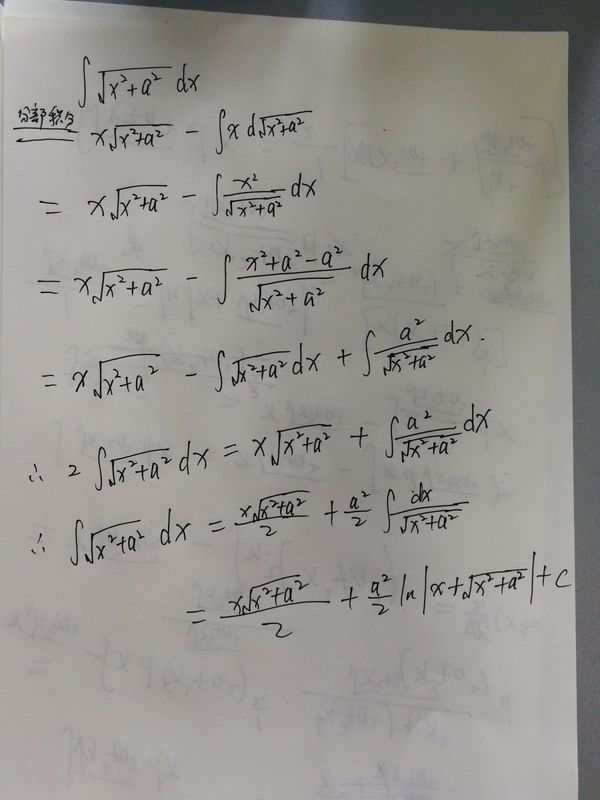 ∫√(x²+a²) dx
分部积分 x√(x²+a²) - ∫x d√(x²+a²)
= x√(x²+a²) - ∫ x²/√(x²+a²) dx
= x√(x²+a²) - ∫ (x²+a²-a²)/√(x²+a²) dx
= x√(x²+a²) - ∫√(x²+a²) dx + ∫ a²/√(x²+a²) dx.
∴ 2∫√(x²+a²) dx = x√(x²+a²) + ∫ a²/√(x²+a²) dx
∴ ∫√(x²+a²) dx = x√(x²+a²)/2 + a²/2 ∫ dx/√(x²+a²)
= x√(x²+a²)/2 + a²/2 ln|x+√(x²+a²)| + C